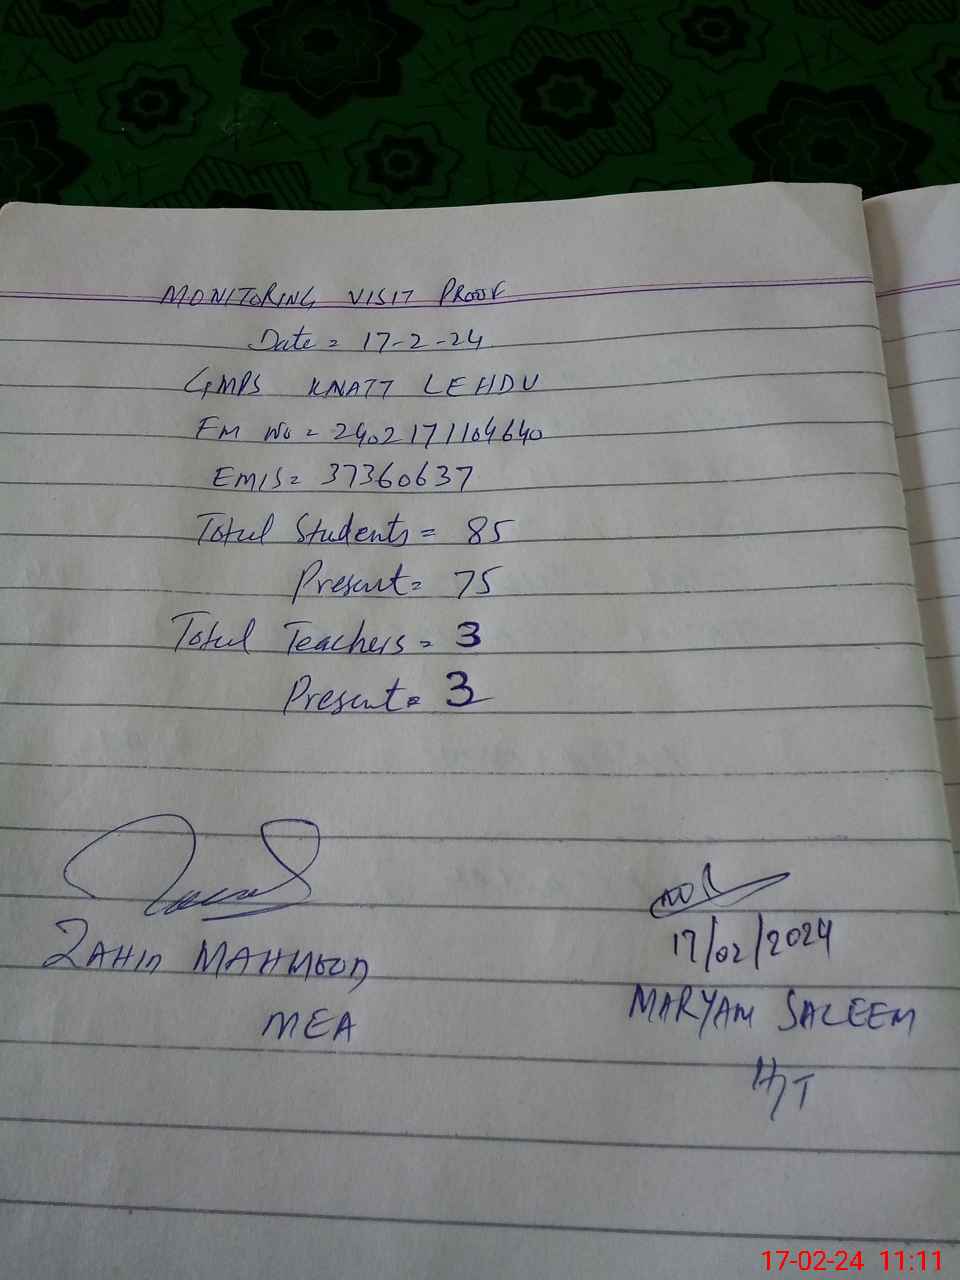 MONITORING VISIT PROOF
Date = 17-2-24
GMPS KHATT LEHDU
FM No = 2402171104640
EMIS = 37360637
Total Students = 85
Present = 75
Total Teachers = 3
Present = 3
17/02/2024
ZAHID MAHMOOD
MARYAM SALEEM
MEA
H/T
17-02-24 11:11